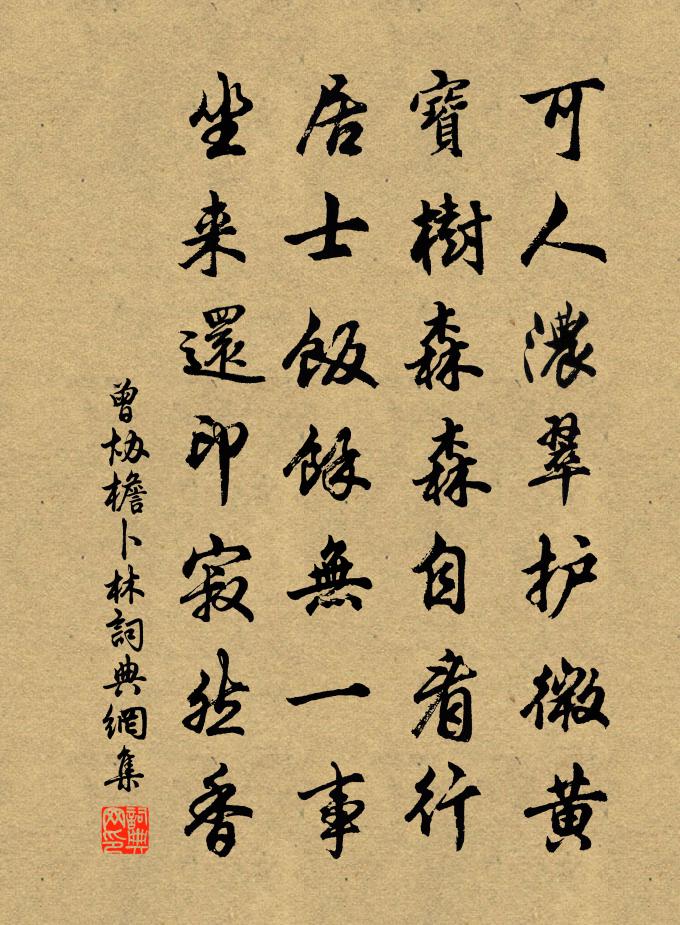 可人濃翠护微黄
寶樹森森自着行
居士飯餘無一事
坐来還印寂然香
曾协檐卜林詞典網集
詞典网印